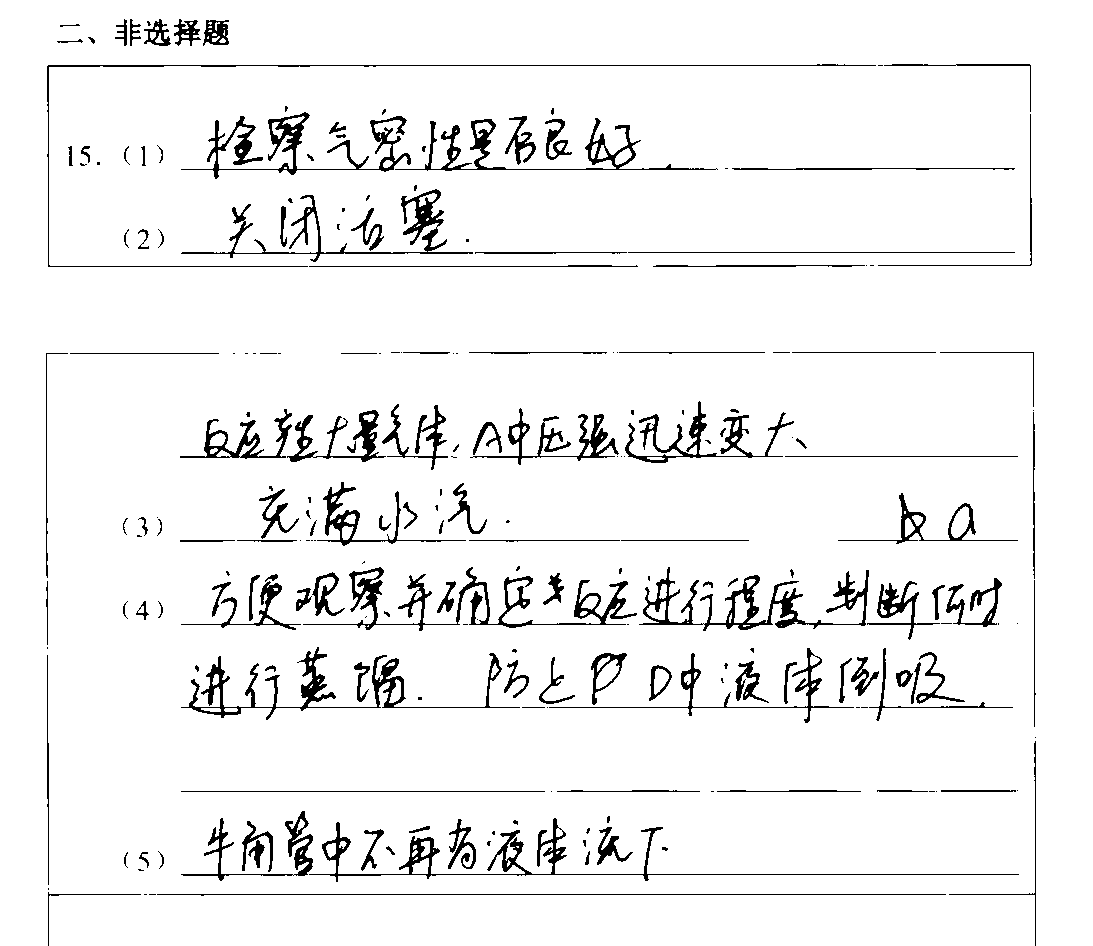 二、非选择题
15.（1） 检察气密性是否良好.
（2） 关闭活塞.
反应产生大量气体,A中压强迅速变大
（3） 充满水汽. a
（4） 方便观察并确定反应进行程度,判断何时
进行蒸馏. 防止D中液体倒吸.
（5） 牛角管中不再有液体流下